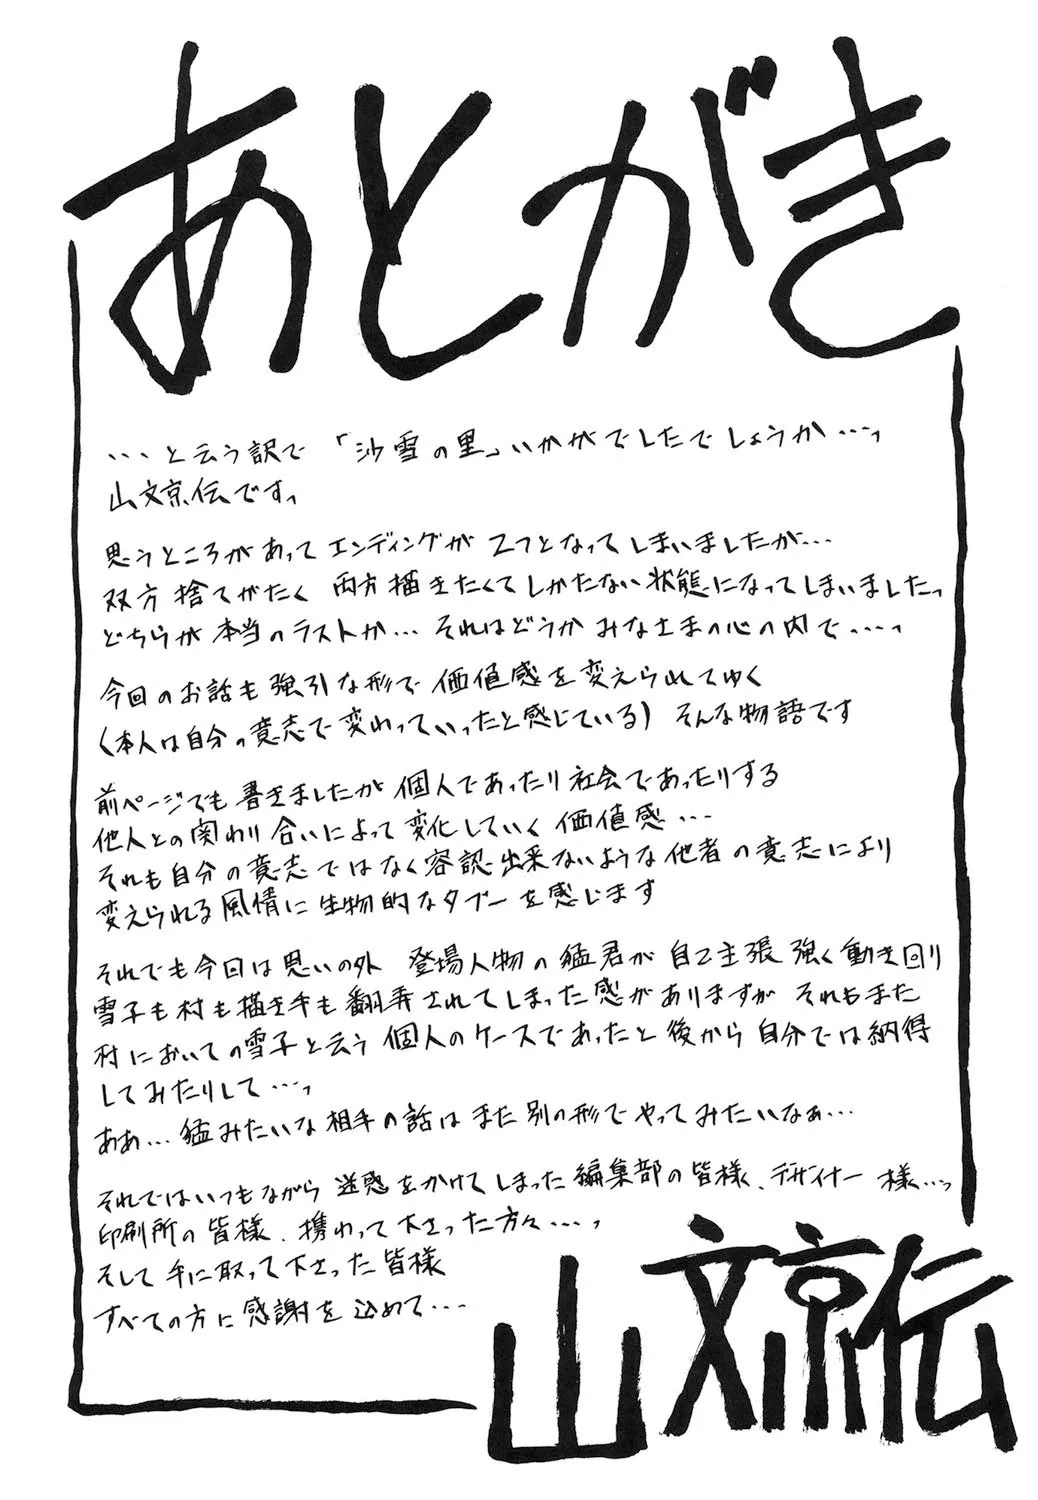 あとがき
…と云う訳で「沙雪の里」いかがでしたでしょうか…。
山文京伝です。
思うところがあってエンディングが2つとなってしまいましたが…
双方捨てがたく 両方描きたくてしかたない状態になってしまいました。
どちらが本当のラストか…それはどうかみなさまの心の内で…。
今回のお話も強引な形で価値感を変えられてゆく
(本人は自分の意志で変わっていったと感じている) そんな物語です
前ページでも書きましたが個人であったり社会であったりする
他人との関わり合いによって変化していく価値感…
それも自分の意志ではなく容認出来ないような他者の意志により
変えられる風情に生物的なタブーを感じます
それでも今回は思いの外 登場人物の猛君が自己主張強く動き回り
雪子も村も描き手も翻弄されてしまった感がありますが それもまた
村においての雪子と云う個人のケースであったと後から自分では納得
してみたりして…。
ああ…猛みたいな相手の話はまた別の形でやってみたいなぁ…
それではいつもながら迷惑をかけてしまった編集部の皆様、デザイナー様…。
印刷所の皆様、携わって下さった方々…。
そして手に取って下さった皆様
すべての方に感謝を込めて…
山文京伝